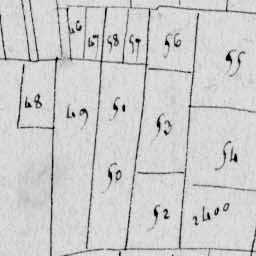 46 47 58 57 56
55
48 49 51
53
54
50
52 2400